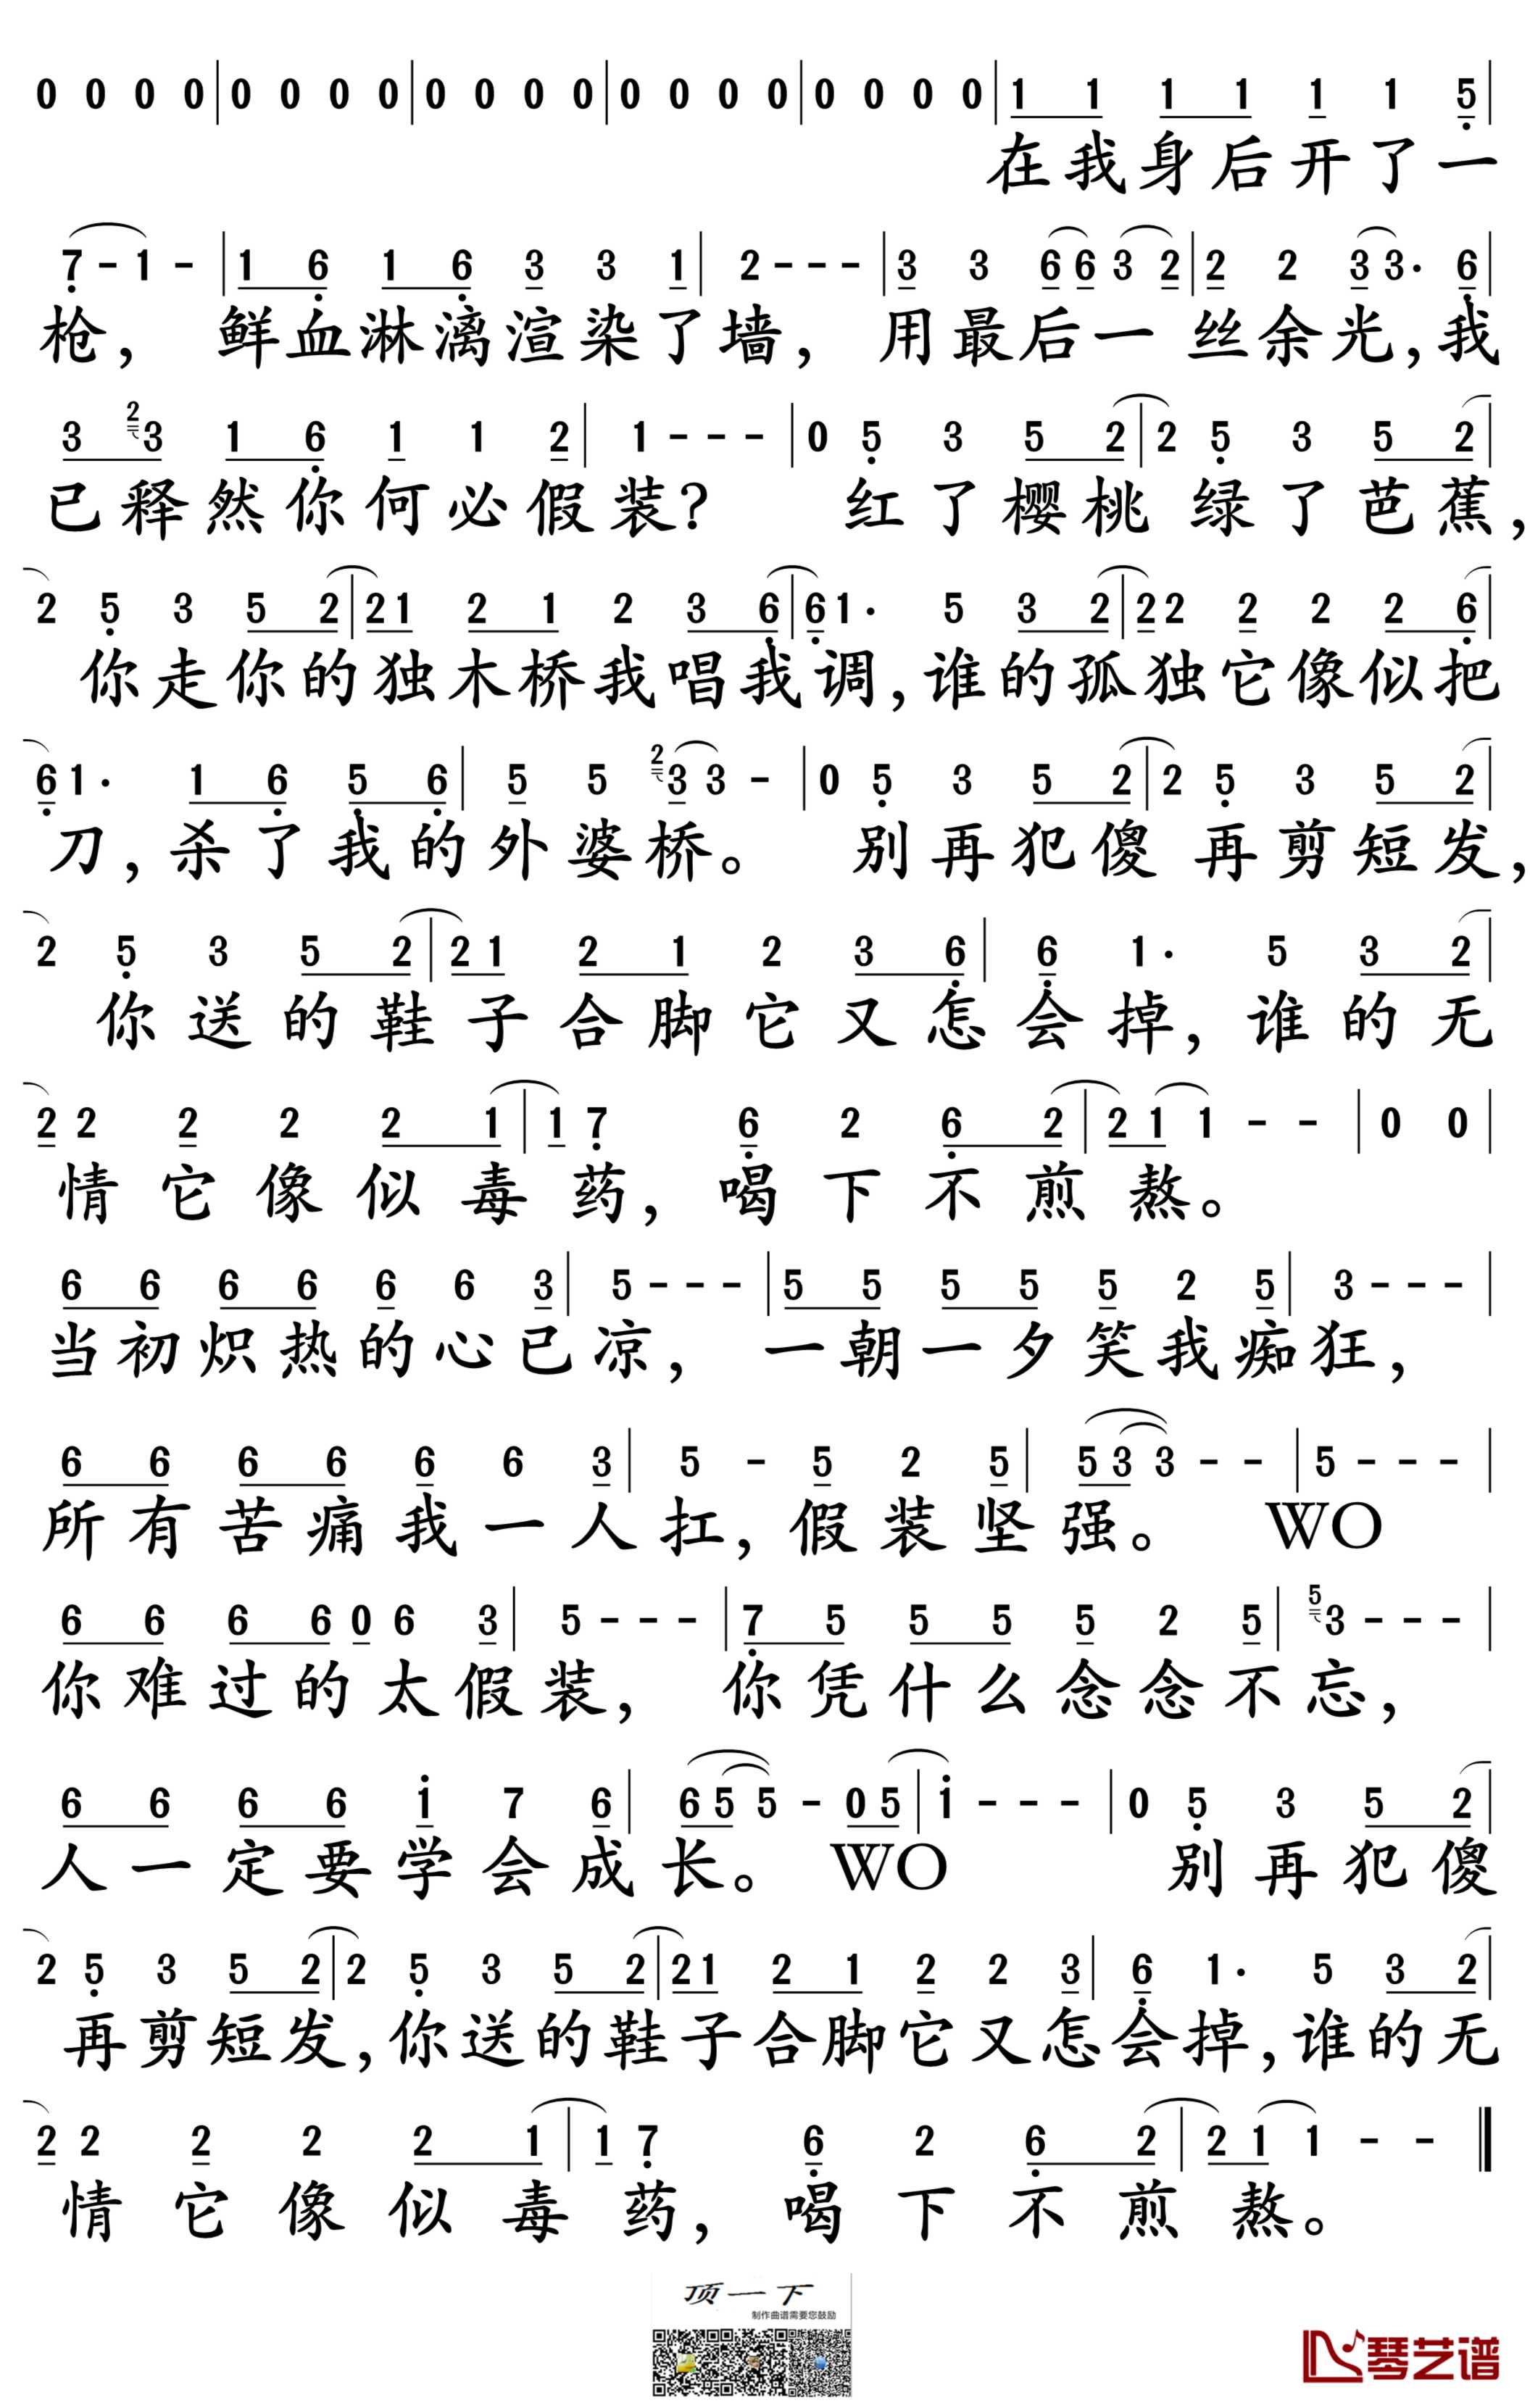 0 0 0 0|0 0 0 0|0 0 0 0|0 0 0 0|0 0 0 0|1 1 1 1 1 1 5|
在我身后开了一
7 - 1 - |1 6 1 6 3 3 1| 2 - - - |3 3 6 6 3 2|2 2 3 3· 6|
枪， 鲜血淋漓渲染了墙， 用最后一丝余光，我
3 2 3 1 6 1 1 2| 1 - - - |0 5 3 5 2|2 5 3 5 2|
已释然你何必假装？ 红了樱桃 绿了芭蕉，
2 5 3 5 2|2 1 2 1 2 3 6|6 1· 5 3 2|2 2 2 2 2 6|
你走你的独木桥我唱我调，谁的孤独它像似把
6 1· 1 6 5 6| 5 5 2 3 3 - |0 5 3 5 2|2 5 3 5 2|
刀，杀了我的外婆桥。 别再犯傻 再剪短发，
2 5 3 5 2|2 1 2 1 2 3 6| 6 1· 5 3 2|
你送的鞋子合脚它又怎会掉，谁的无
2 2 2 2 2 1|1 7 6 2 6 2|2 1 1 - - |0 0|
情它像似毒药，喝下不煎熬。
6 6 6 6 6 6 3| 5 - - - |5 5 5 5 5 2 5| 3 - - - |
当初炽热的心已凉， 一朝一夕笑我痴狂，
6 6 6 6 6 6 3| 5 - 5 2 5| 5 3 3 - - |5 - - - |
所有苦痛我一人扛，假装坚强。 WO
6 6 6 6 0 6 3| 5 - - - |7 5 5 5 5 2 5| 5 3 - - - |
你难过的太假装， 你凭什么念念不忘，
6 6 6 6 1 7 6| 6 5 5 - 0 5|1 - - - |0 5 3 5 2|
人一定要学会成长。 WO 别再犯傻
2 5 3 5 2|2 5 3 5 2|2 1 2 1 2 2 3| 6 1· 5 3 2|
再剪短发，你送的鞋子合脚它又怎会掉，谁的无
2 2 2 2 2 1|1 7 6 2 6 2|2 1 1 - - ‖
情它像似毒药，喝下不煎熬。
顶一下
制作曲谱需要您鼓励
琴艺谱